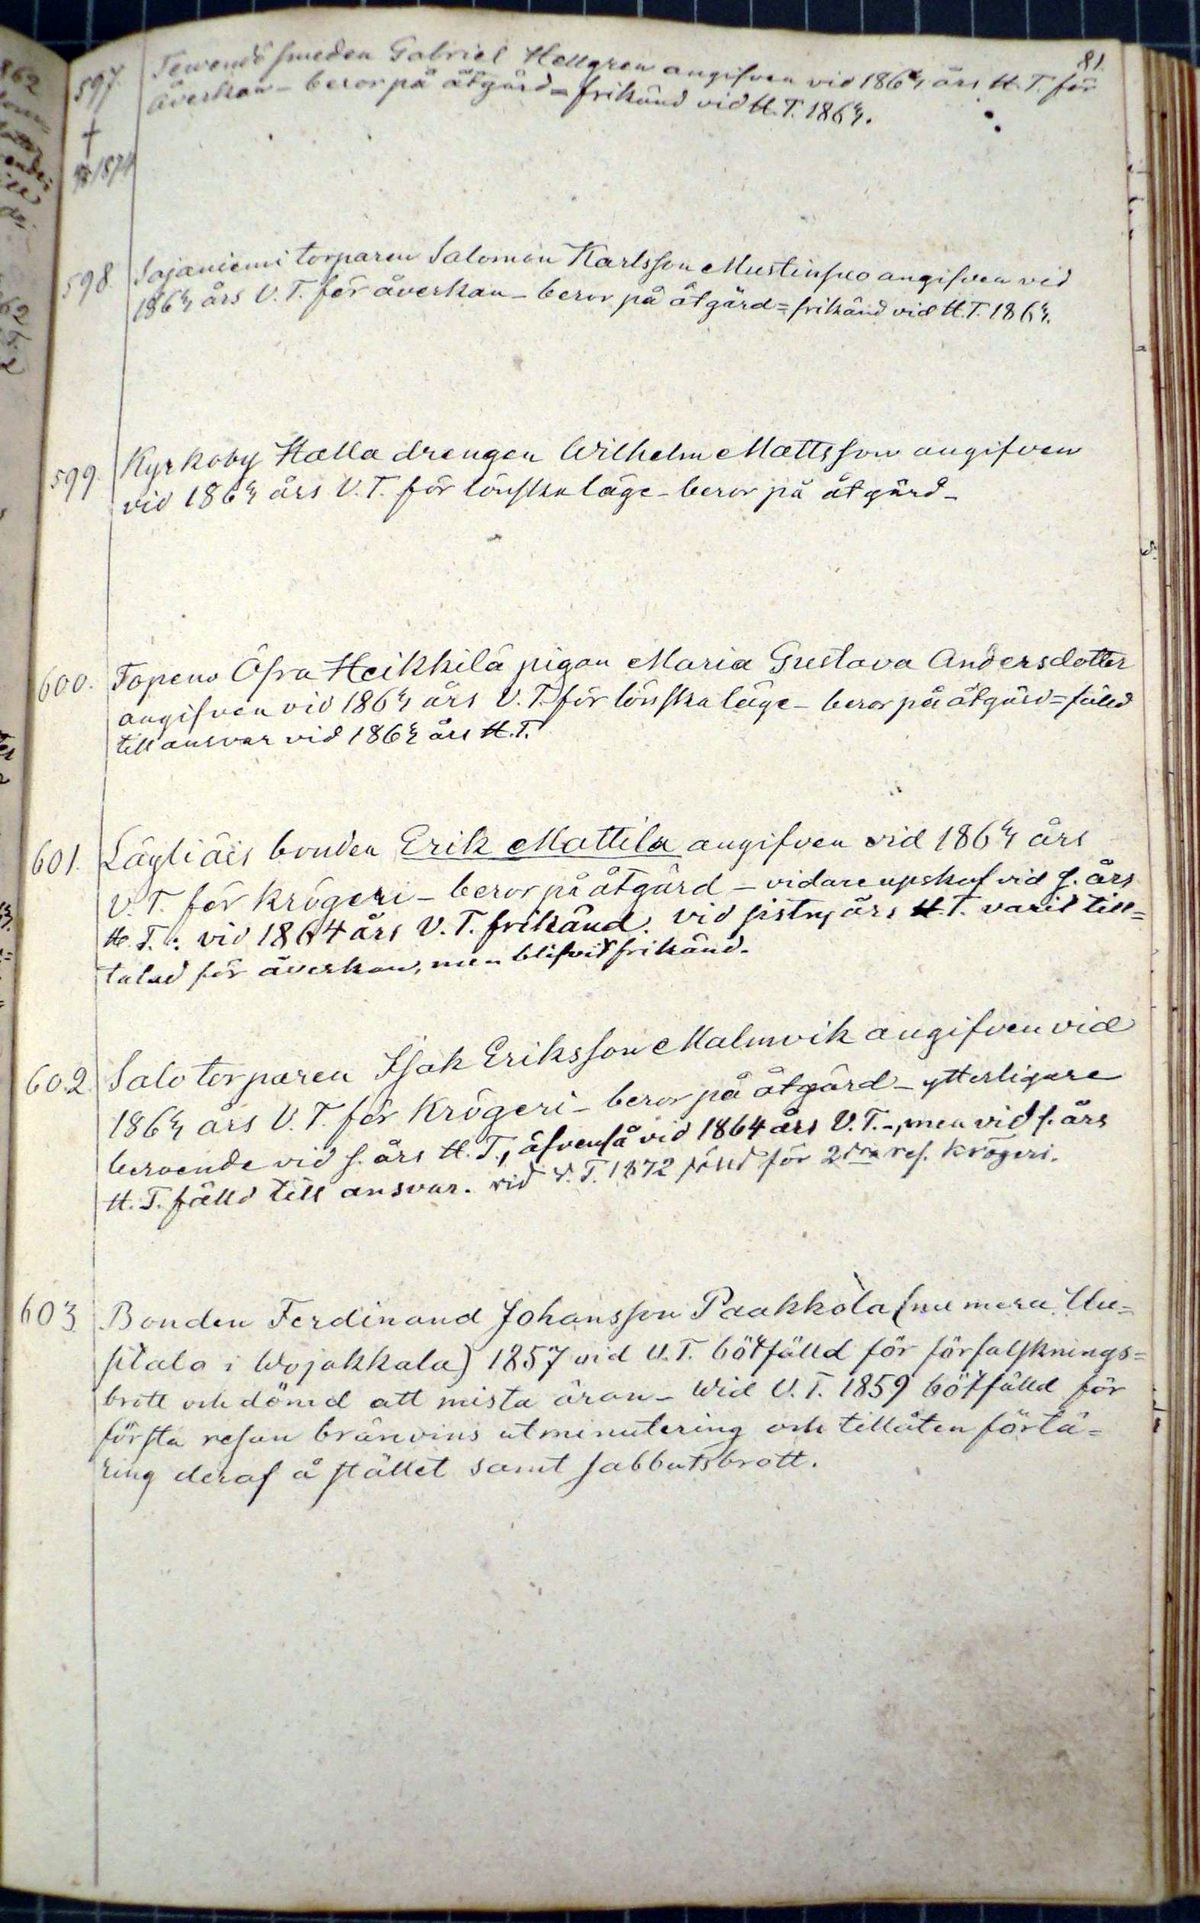 81.
597. Tewendö smeden Gabriel Hellgren angifven vid 1863 års H. T. för
åverkan - beror på åtgärd = frikänd vid H. T. 1863.
†
1874
598. Sajaniemi torparen Salomon Karlsson Mustinsuo angifven vid
1863 års V. T. för åverkan - beror på åtgärd = frikänd vid H. T. 1863.
599. Kyrkoby Hella drengen Wilhelm Mattsson angifven
vid 1863 års V. T. för lönskaläge - beror på åtgärd -
600. Topeno Öfra Heikkilä pigan Maria Gustava Andersdotter
angifven vid 1863 års V. T. för lönskaläge - beror på åtgärd = fälld
till ansvar vid 1863 års H. T.
601. Läyliäis bonden Erik Mattila angifven vid 1863 års
V. T. för krögeri - beror på åtgärd - vidare upskof vid s. års
H. T.: vid 1864 års V. T. frikänd. vid sistn. års H. T. varit till=
talad för åverkan, men blifvit frikänd.
602. Salo torparen Isak Eriksson Malmvik angifven vid
1863 års V. T. för krögeri - beror på åtgärd - ytterligare
beroende vid s. års H. T., äfvenså vid 1864 års V. T. -, men vid s. års
H. T. fälld till ansvar. vid V. T. 1872 fälld för 2dra res. krögeri.
603. Bonden Ferdinand Johansson Paakkola (nu mera Uu=
sitalo i Wojakkala) 1857 vid V. T. bötfälld för förfalsknings=
brott och dömd att mista äran - Wid V. T. 1859 bötfälld för
första resan bränvins utminutering och tillåten förtä=
ring deraf å stället samt sabbatsbrott.